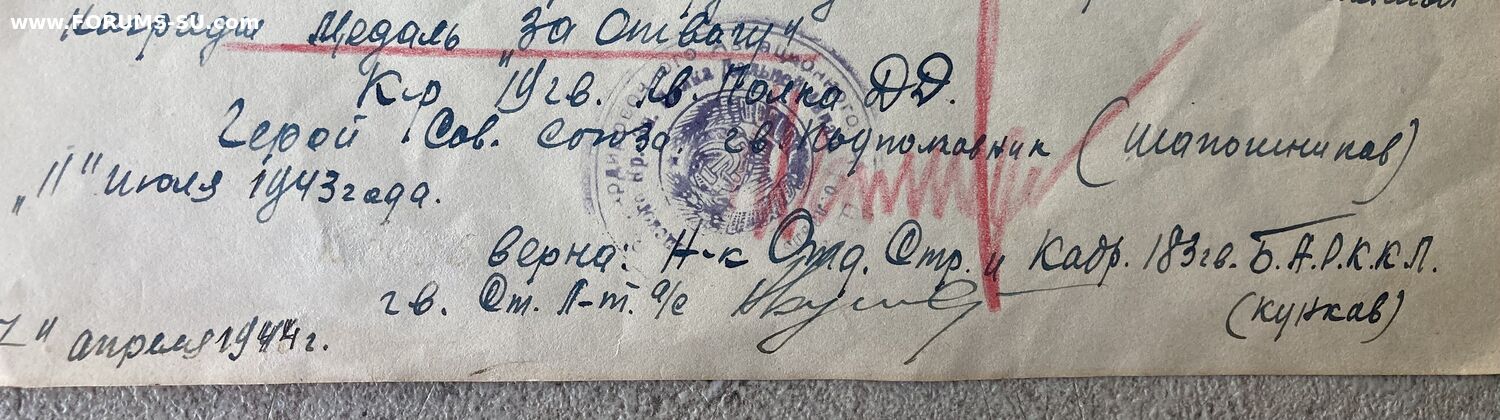 www.FORUMS-SU.com
Награды Медаль "За Отвагу"
К-р 19 гв. Ав. Полка ДД.
Герой Сов. Союза гв. Подполковник (Шапошников)
"11" июля 1943 года.
верна: Н-к Отд. Стр. и Кадр. 183 гв. Б.А.Р.К.К.Л.
гв. Ст. Л-т. а/с
(кункав)
" апреля 1944 г.